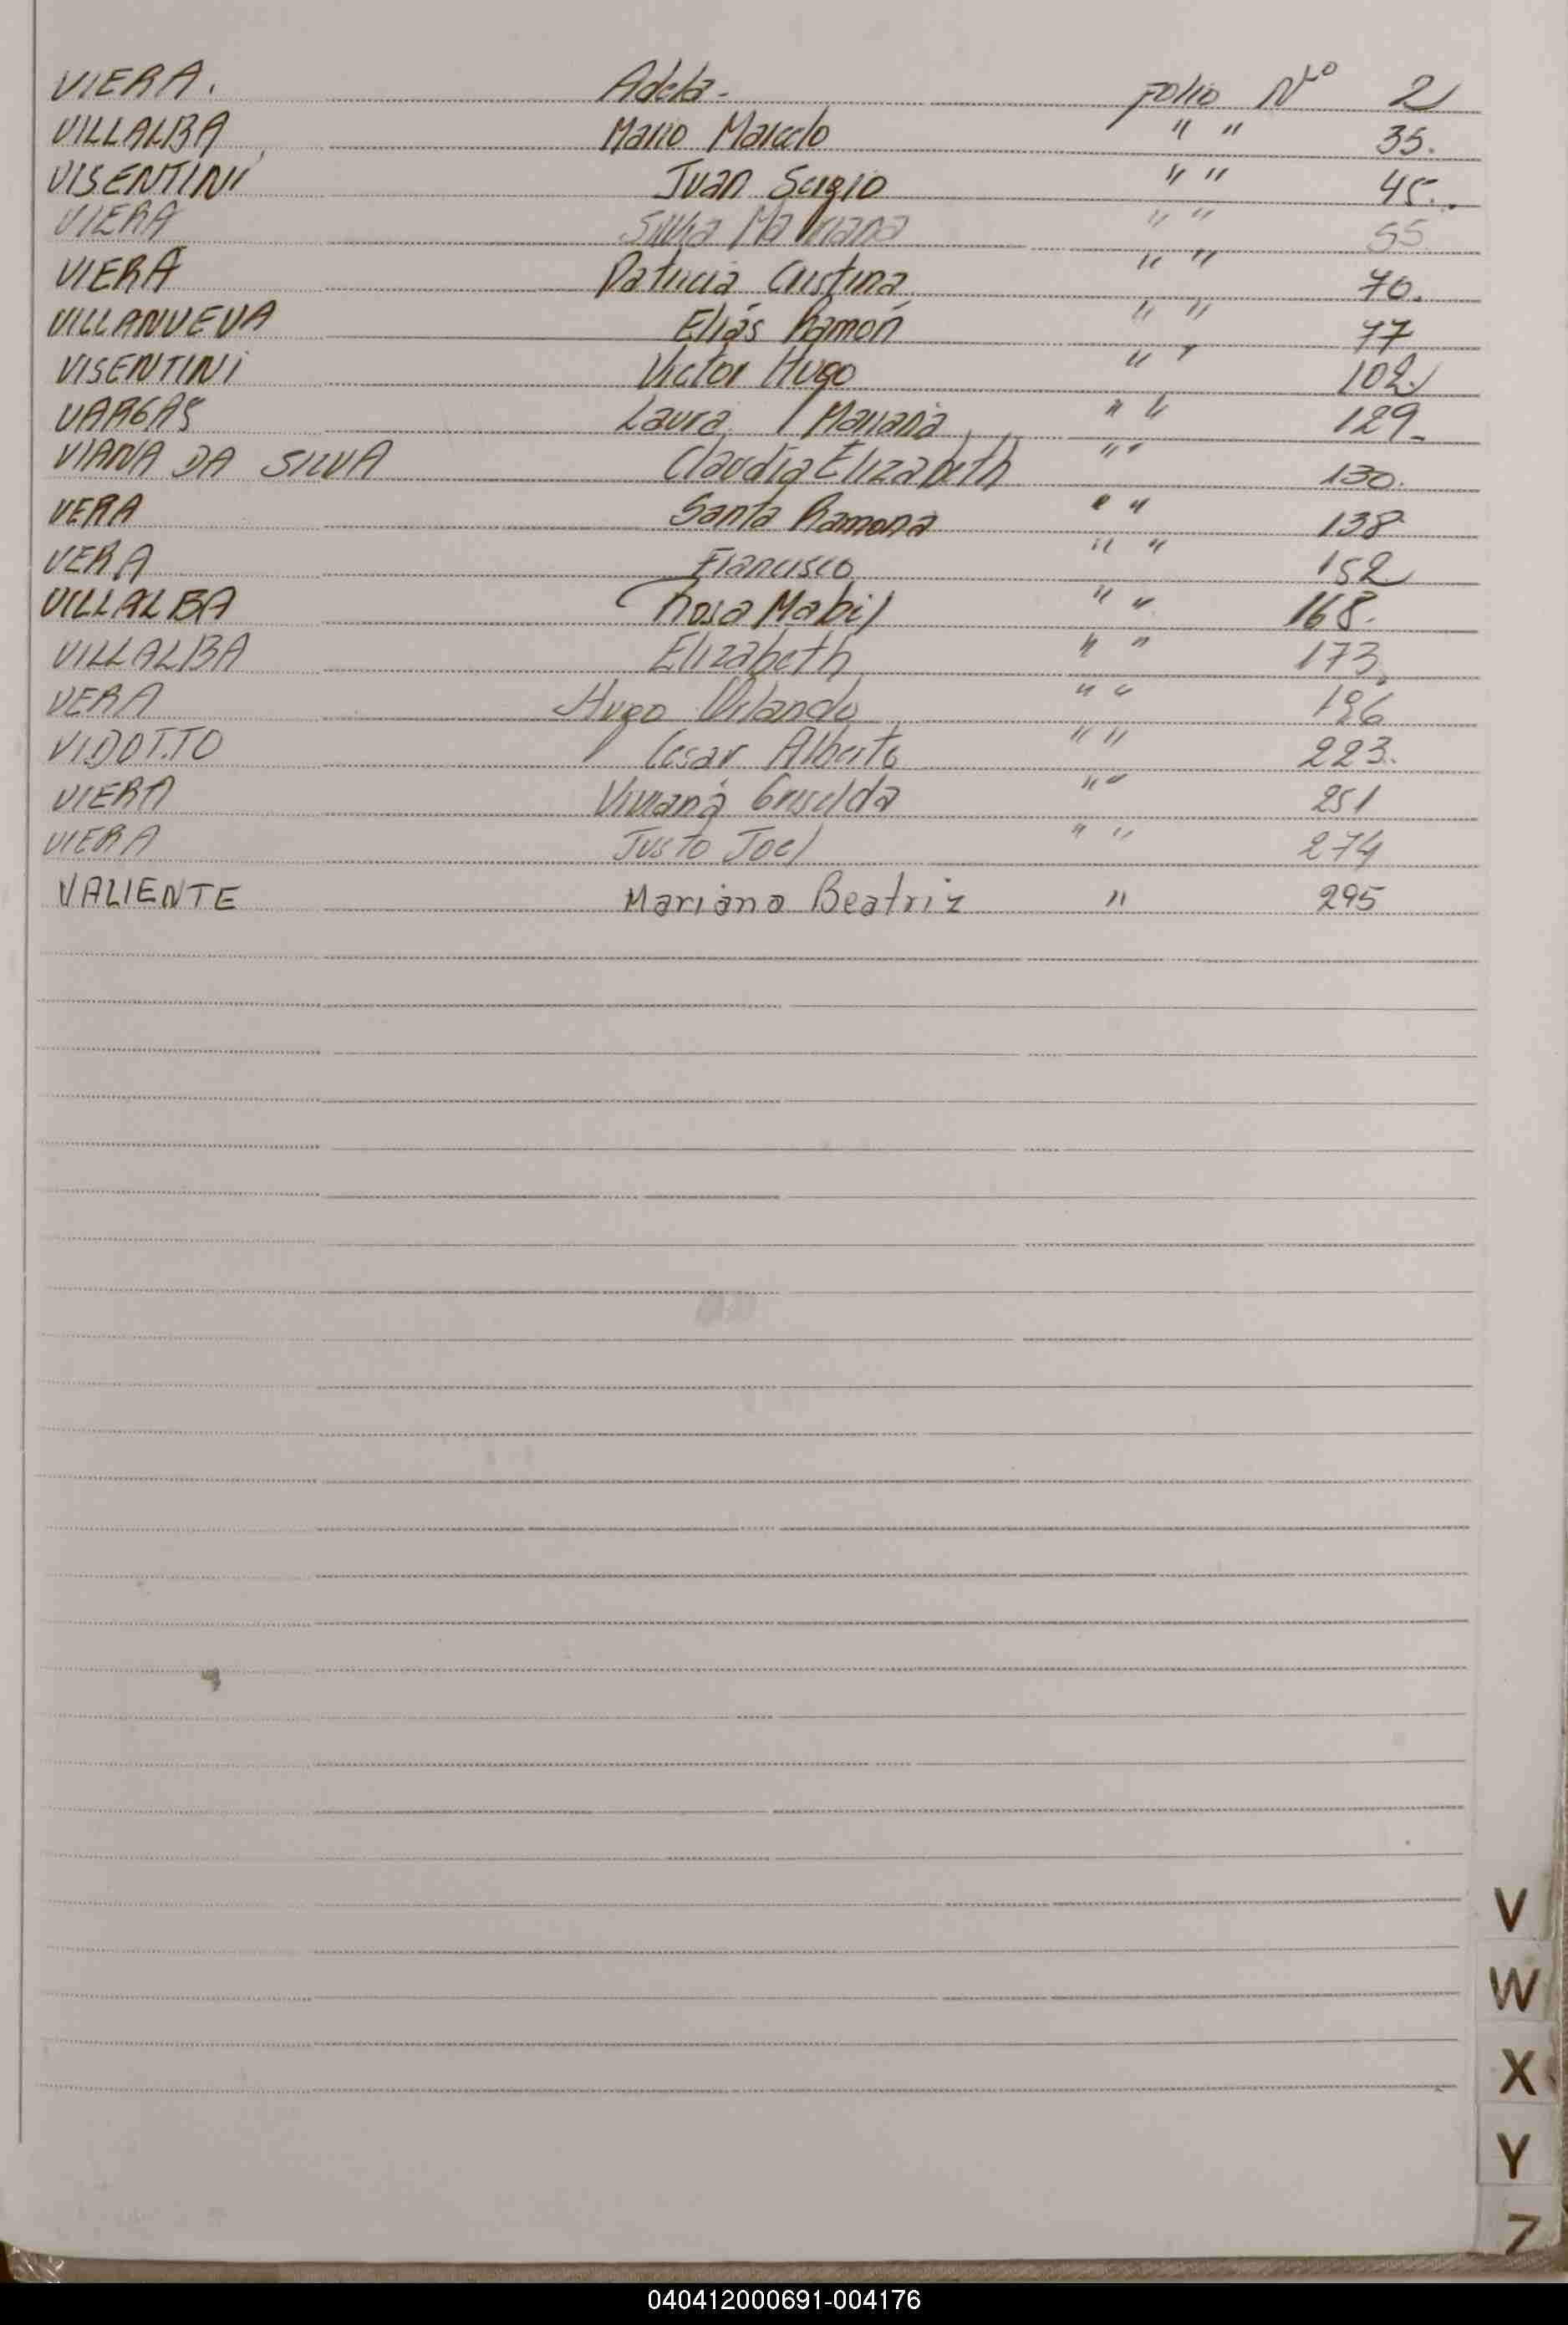 VIERA. Adela- Folio Nº 2
VILLALBA Mario Marcelo " " 35.
VISENTINI Juan Sergio " " 45.
VIERA Silvia Mariana " " 55
VIERA Patricia Cristina " " 70.
VILLANUEVA Elías Ramón " " 77
VISENTINI Victor Hugo " " 102.
VARGAS Laura Mariana " " 129-
VIANA DA SILVA Claudia Elizabeth " " 130.
VERA Santa Ramona " " 138
VERA Francisco " " 152
VILLALBA Rosa Mabil " " 168.
VILLALBA Elizabeth " " 173.
VERA Hugo Orlando " "
VIDOTTO Cesar Alberto " " 223.
VIERA Viviana Griselda " " 251
VIERA Justo Joel " " 274
VALIENTE Mariana Beatriz " 295
V
W
X
Y
Z
040412000691-004176